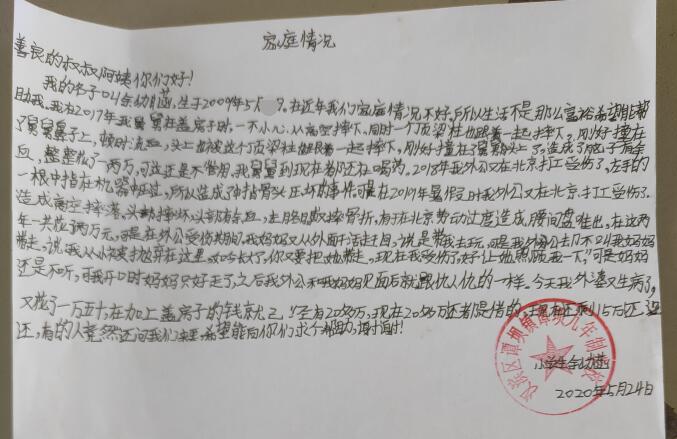 家庭情况
善良的叔叔阿姨你们好！
我的名子叫余幼蕊，生于2009年5月 9，在近年我们家庭情况不好，所以生活不是那么富裕希望能帮
助我。我为2017年我舅舅在盖房时，一不小心从高空摔下，同时一个顶梁柱也跟着一起摔下，刚好撞在
了舅舅鼻子上，顿时流血，头上也被这个顶梁柱也跟着一起摔下，刚好撞在了舅舅头上了。造成了脑子有余
血，整整花了两万，可这还是不管用，我舅舅到现在都还在喝药。2018年我外公又在北京打工受伤了，左手的
一根中指在机器轧过，所以造成了中指骨头还坏的事件。可是在2019年暑假又时我外公又在北京打工受伤了。
造成高空摔落，头部摔坏头部有余血，走路腿摔骨折，有于在北京劳动过度造成，腰间盘堆出，在这两
年一共花了两万元，可是在外公受伤期间，我妈妈又从外面干活走了进来，说是带我去玩，可是我外公去几不叫我妈妈
带走，说我从小被扔弃在这里，如今长大了，你又要把她带走，现在我受伤了，好让她照顾我一下，"可是妈妈
还是不听，可我开口时妈妈只好走了，之后我外公和我妈妈见面后就跟仇人仇的一样。今天我外婆又生病了，
又花了一万五十，在加上盖房子的钱就已经有20多万，现在20多万还都是借的，现在还剩15万还没
还，有的人竟然还问我们要，希望能向你们求个帮助，谢谢！
汉滨区谭坝镇谭坝九年制学校
小学生余幼蕊
2020年5月24日